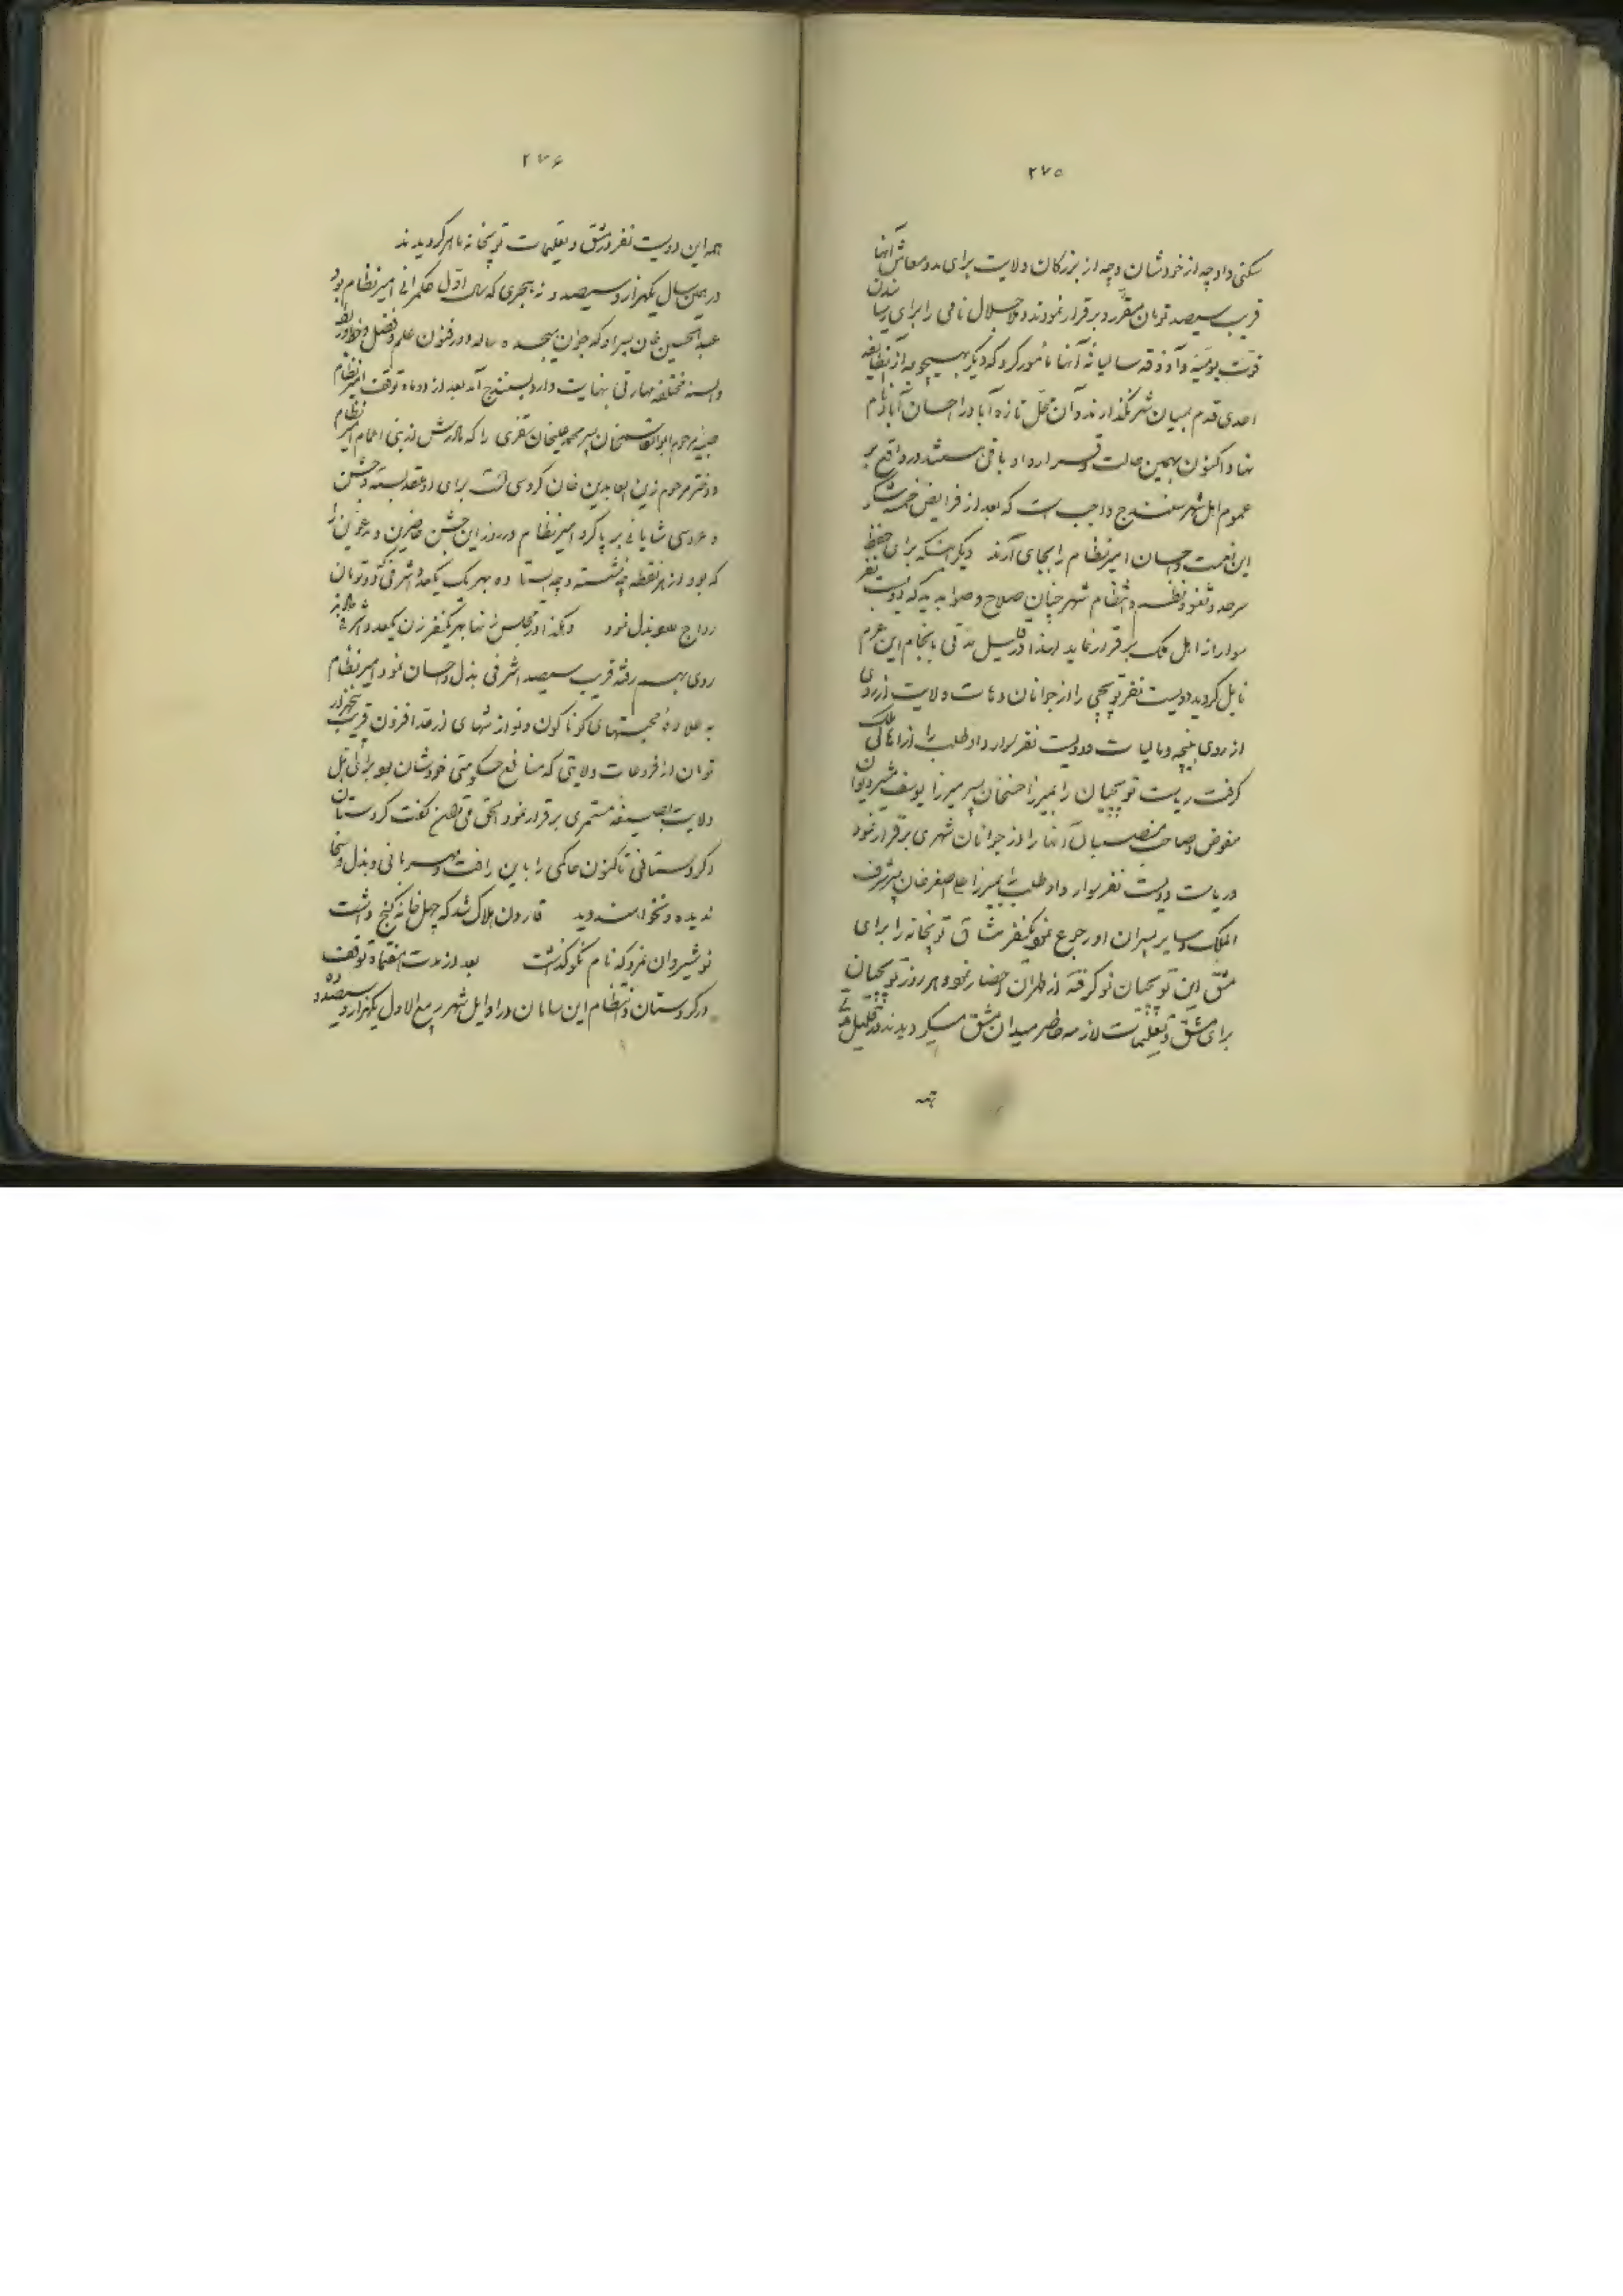 ۲۷۵
سکنی داد چه از خودشان و چه از بزرکان ولایت برای مدد معاش آنها
قریب سیصد تومان مقرر و برقرار نمودند و ملا جلال نامی را برای رسا ندن
قوت یومیه و آذوقه سالیانه آنها مأمور کرد که دیکر بهیچوجه از آن طایفه
احدی قدم بمیان شهر نکذارند و آن محل تازه آباد را احسان آباد نام
نهاد اکنون بهمین حالت و قرارداد باقی هستند در واقع بر
عموم اهل شهر سنندج واجب است که بعد از فرایض خمسه شکر
این نعمت و احسان امیر نظام را بجای آرند دیکر آنکه برای حفظ
سرحد و ثغور و نظم و انتظام شهر چنان صلاح و صواب دید که دویست نفر
سوار از اهل ملک برقرار نماید لهذا در قلیل مدتی بانجام این عزم
نایل کردید دویست نفر توپچی را از جوانان دهات ولایت از روی
از روی بنیچه و مالیات و دویست نفر سوار داوطلب را از اهالی ملک
کرفت ریاست توپچیان را بمیرزا حسنخان پسر میرزا یوسف مشیر دیوان
مفوض و صاحب منصبان آنها را از جوانان شهری برقرار نمود
و ریاست دویست نفر سوار داوطلب را بمیرزا علی اصغر خان پسر شرف
الملک و سایر پسران او رجوع نمود یکنفر مشاق توپخانه را برای
مشق این توپچیان نو کرفته از طهران احضار نمود هر روز توپچیان
برای مشق و تعلیمات لازمه حاضر میدان مشق میکردیدند در قلیل مدتی
همه
۲۷۶
همه این دویست نفر در مشق و تعلیمات توپخانه ماهر کردیدند
در همین سال یکهزار و سیصد و نه هجری که سال اول حکمرانی امیر نظام بود
عبدالحسین خان پسر او که جوان هیجده ساله و در فنون علم و فضل و خط و ربط
و السنه مختلفه مهارتی بنهایت دارد بسنندج آمد بعد از دو ماه توقف امیر نظام
صبیه مرحوم ابوالقاسمخان پسر محمد علیخان سقزی را که مادرش از بنی اعمام امیر نظام
و دختر مرحوم زین العابدین خان کروسی است برای او عقد بسته و جشن
و عروسی شایانی بر پا کرد امیر نظام در روز این جشن حاضرین و مدعوین را
که بود از هر نقطه چه نشسته و چه ایستاده بهر یک یکعدد اشرفی دو تومان
رواج بذل نمود و هکذا در مجلس زنها بهر یکنفر زن یکعدد اشرفی
روی بهم رفته قریب سیصد اشرفی بذل و احسان نمود امیر نظام
به علاوه محبتهای کوناکون و نوازشهای از حد افزون قریب پنجهزار
تومان از فروعات ولایتی که منافع حکومتی خودشان بود برای اهل
ولایت بصیغه مستمری برقرار نمود الحق می توان کفت کردستان
و کردستانی تاکنون حاکمی را باین رافت و مهربانی و بذل و سخا
ندیده و نخواهند دید قارون هلاک شد که چهل خانه کنج داشت
نوشیروان نمرد که نام نکو کذاشت بعد از مدت هفتماه توقف
در کردستان و انتظام این سامان در اوایل شهر ربیع الاول یکهزار و سیصد و ده